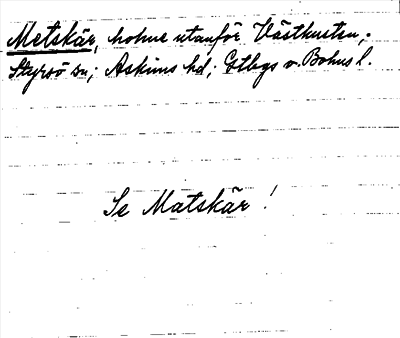 Metskär, holme utanför Västkusten;
Styrsö sn; Askims hd; Gtbgs o. Bohus l.
Se Matskär!